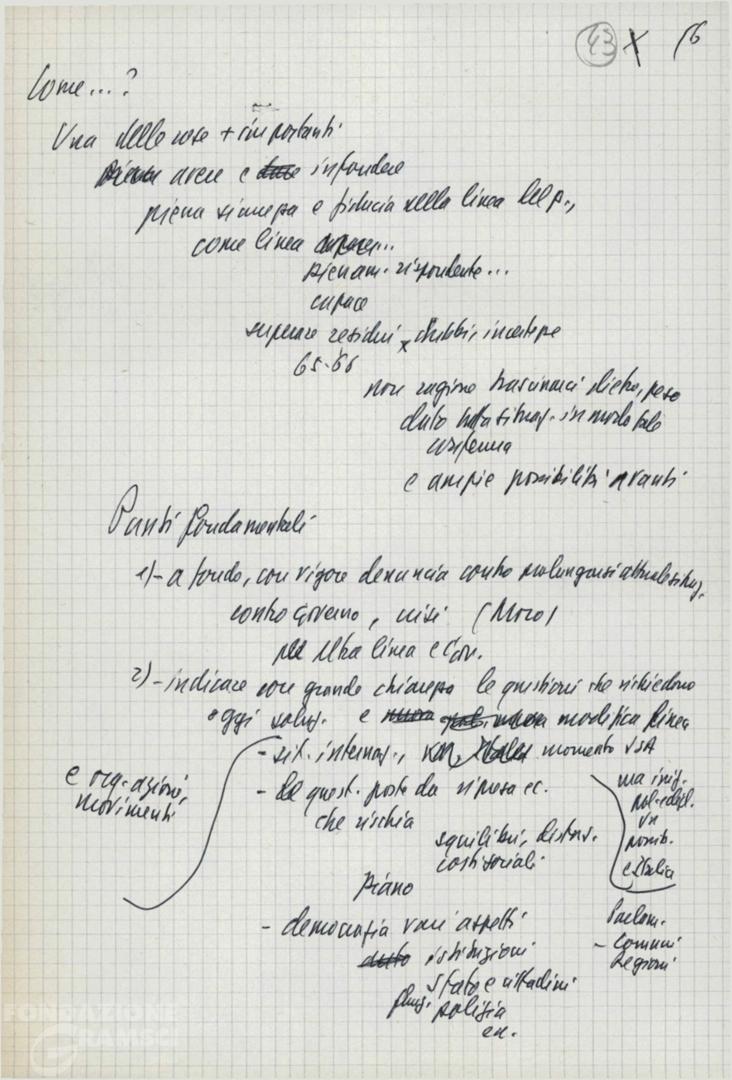 43 X 16
Come...?
Una delle cose + importanti
avere e infondere
piena sicurezza e fiducia nella linea del p.,
come linea
pienam. rispondente...
capace
superare residui x dubbi, incertezze
65-66
non ragione trascinarci dietro, peso
dato situaz. in modo tale
conferma
e ampie possibilità avanti
Punti fondamentali
1)- a fondo, con vigore denuncia contro prolungarsi attuale situaz.
contro governo, crisi (Moro)
altra linea e Gov.
2)- indicare con grande chiarezza le questioni che richiedono
oggi soluz. e modifica linea
- sit. internaz., momento USA
e org. azioni,
movimenti
- quest. poste da ripresa ec.
che rischia
squilibri, distors.
costi sociali
Piano
ma
VN
possib.
e Italia
- democrazia vari aspetti
istituzioni
Stato e cittadini
polizia
ecc.
Parlam.
- Comuni
Regioni
FONDAZIONE
GRAMSCI